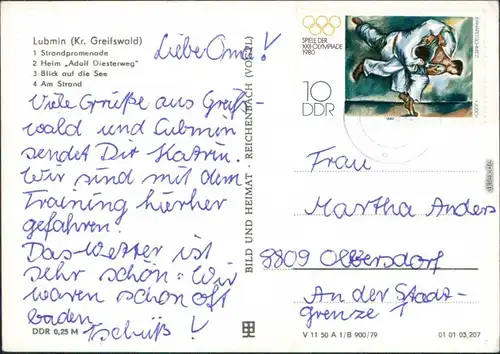 Lubmin (Kr. Greifswald)
1 Strandpromenade
2 Heim „Adolf Diesterweg"
3 Blick auf die See
4 Am Strand
Liebe Oma!
Viele Grüße aus Greifs-
wald und Lubmin
sendet Dir Katrin.
Wir sind mit dem
Training hierher
gefahren.
Das Wetter ist
sehr schön. Wir
waren schon oft
baden.
Tschüß!
DDR 0,25 M
BILD UND HEIMAT · REICHENBACH (VOGTL)
SPIELE DER
XXII. OLYMPIADE
1980
10
DDR
Frau
Martha Anders
8809 Olbersdorf
An der Stadt-
grenze 1
V 11 50 A 1/B 900/79
01 01 03 207